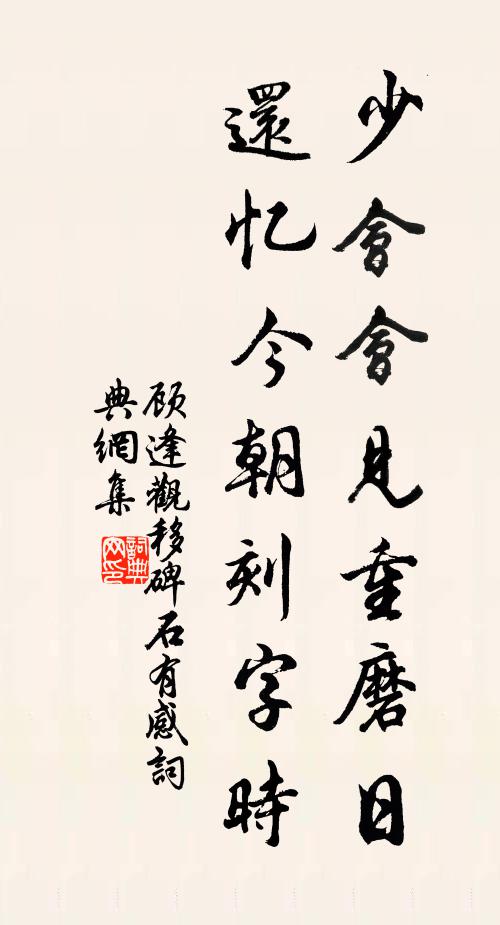 少會會見重磨日
還忆今朝刻字時
顾逢觀移碑石有感詞
典網集
詞典
网印